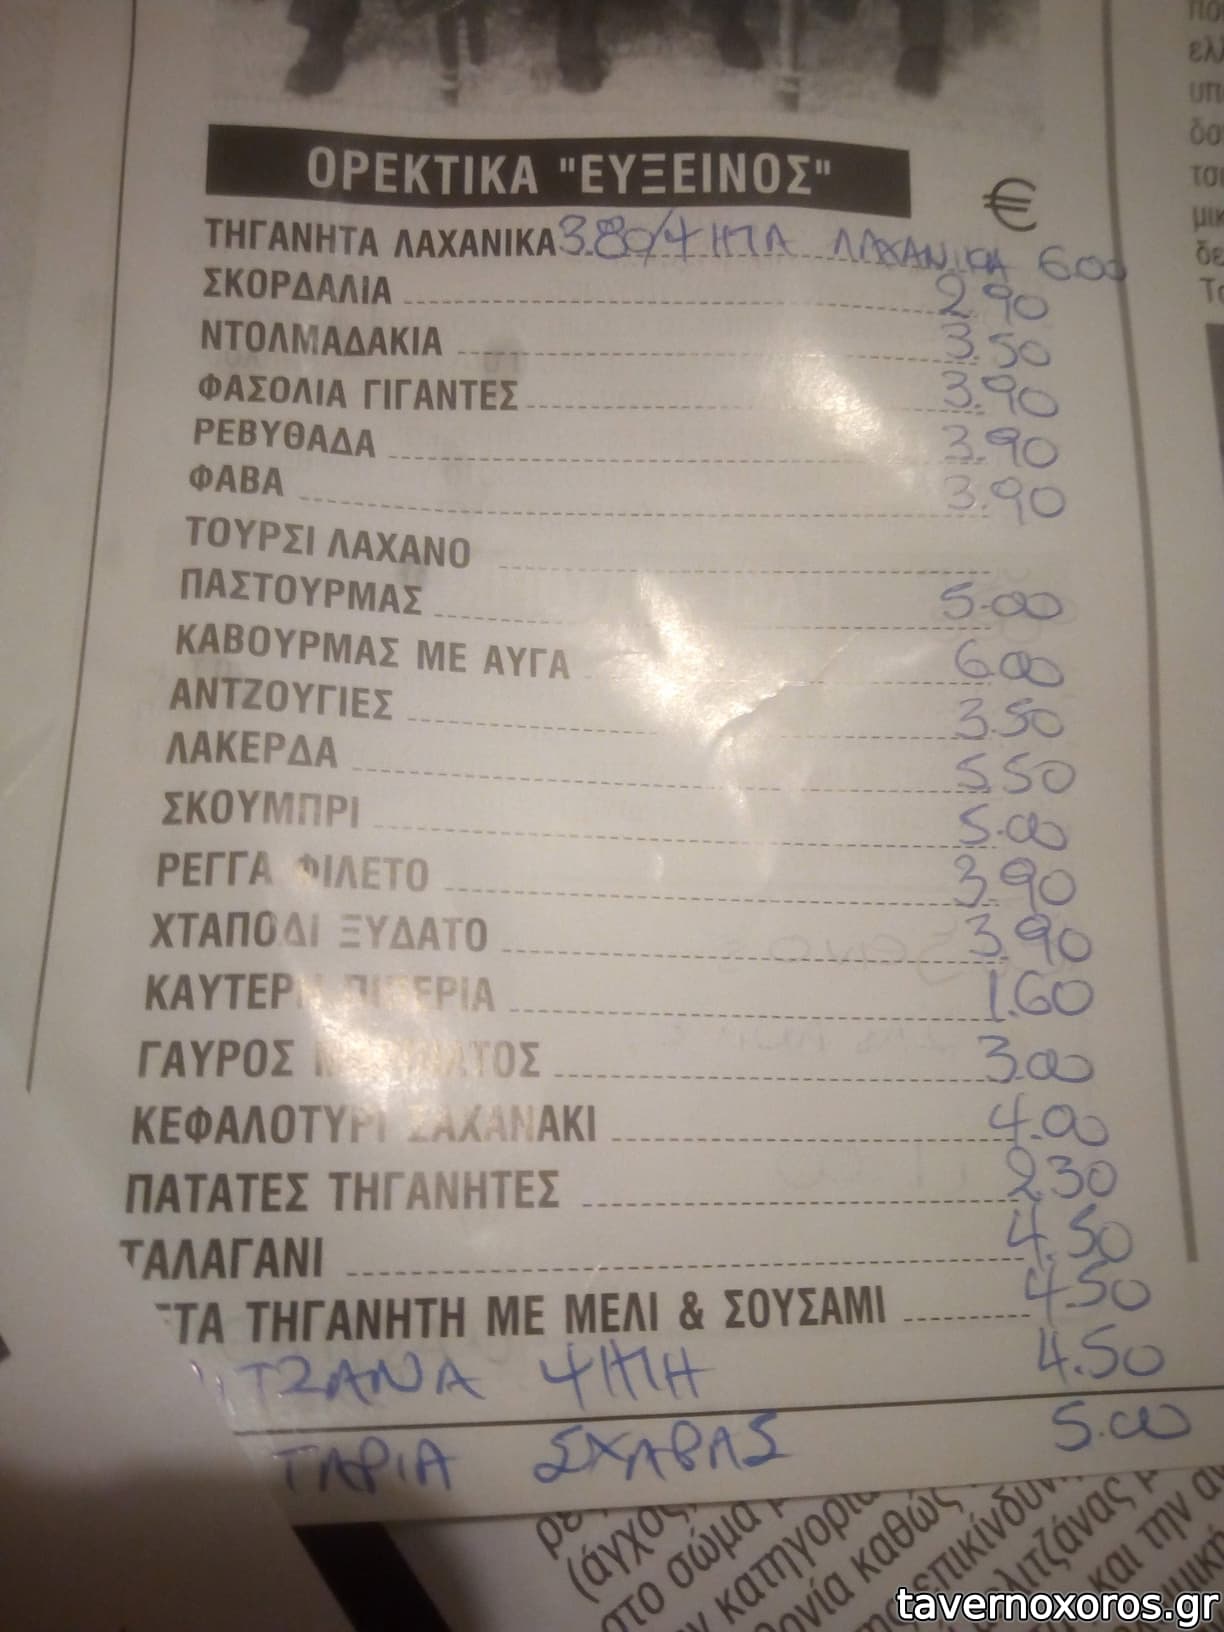 ΟΡΕΚΤΙΚΑ "ΕΥΞΕΙΝΟΣ"
€
ΤΗΓΑΝΗΤΑ ΛΑΧΑΝΙΚΑ 3.80/ΨΗΤΑ ΛΑΧΑΝΙΚΑ 6.00
ΣΚΟΡΔΑΛΙΑ 2.90
ΝΤΟΛΜΑΔΑΚΙΑ 3.50
ΦΑΣΟΛΙΑ ΓΙΓΑΝΤΕΣ 3.90
ΡΕΒΥΘΑΔΑ 3.90
ΦΑΒΑ 3.90
ΤΟΥΡΣΙ ΛΑΧΑΝΟ
ΠΑΣΤΟΥΡΜΑΣ 5.00
ΚΑΒΟΥΡΜΑΣ ΜΕ ΑΥΓΑ 6.00
ΑΝΤΖΟΥΓΙΕΣ 3.50
ΛΑΚΕΡΔΑ 5.50
ΣΚΟΥΜΠΡΙ 5.00
ΡΕΓΓΑ ΦΙΛΕΤΟ 3.90
ΧΤΑΠΟΔΙ ΞΥΔΑΤΟ 3.90
ΚΑΥΤΕΡΗ ΠΙΠΕΡΙΑ 1.60
ΓΑΥΡΟΣ ΜΑΡΙΝΑΤΟΣ 3.00
ΚΕΦΑΛΟΤΥΡΙ ΣΑΧΑΝΑΚΙ 4.00
ΠΑΤΑΤΕΣ ΤΗΓΑΝΗΤΕΣ 2.30
ΤΑΛΑΓΑΝΙ 4.50
ΕΤΑ ΤΗΓΑΝΗΤΗ ΜΕ ΜΕΛΙ & ΣΟΥΣΑΜΙ 4.50
ΙΤΖΑΝΑ ΨΗΤΗ 4.50
ΤΑΡΙΑ ΣΧΑΡΑΣ 5.00
(άγχος,
στο σώμα
κατηγορία
καθώς
επικίνδυν
μελιτζάνας
και την
tavernoxoros.gr